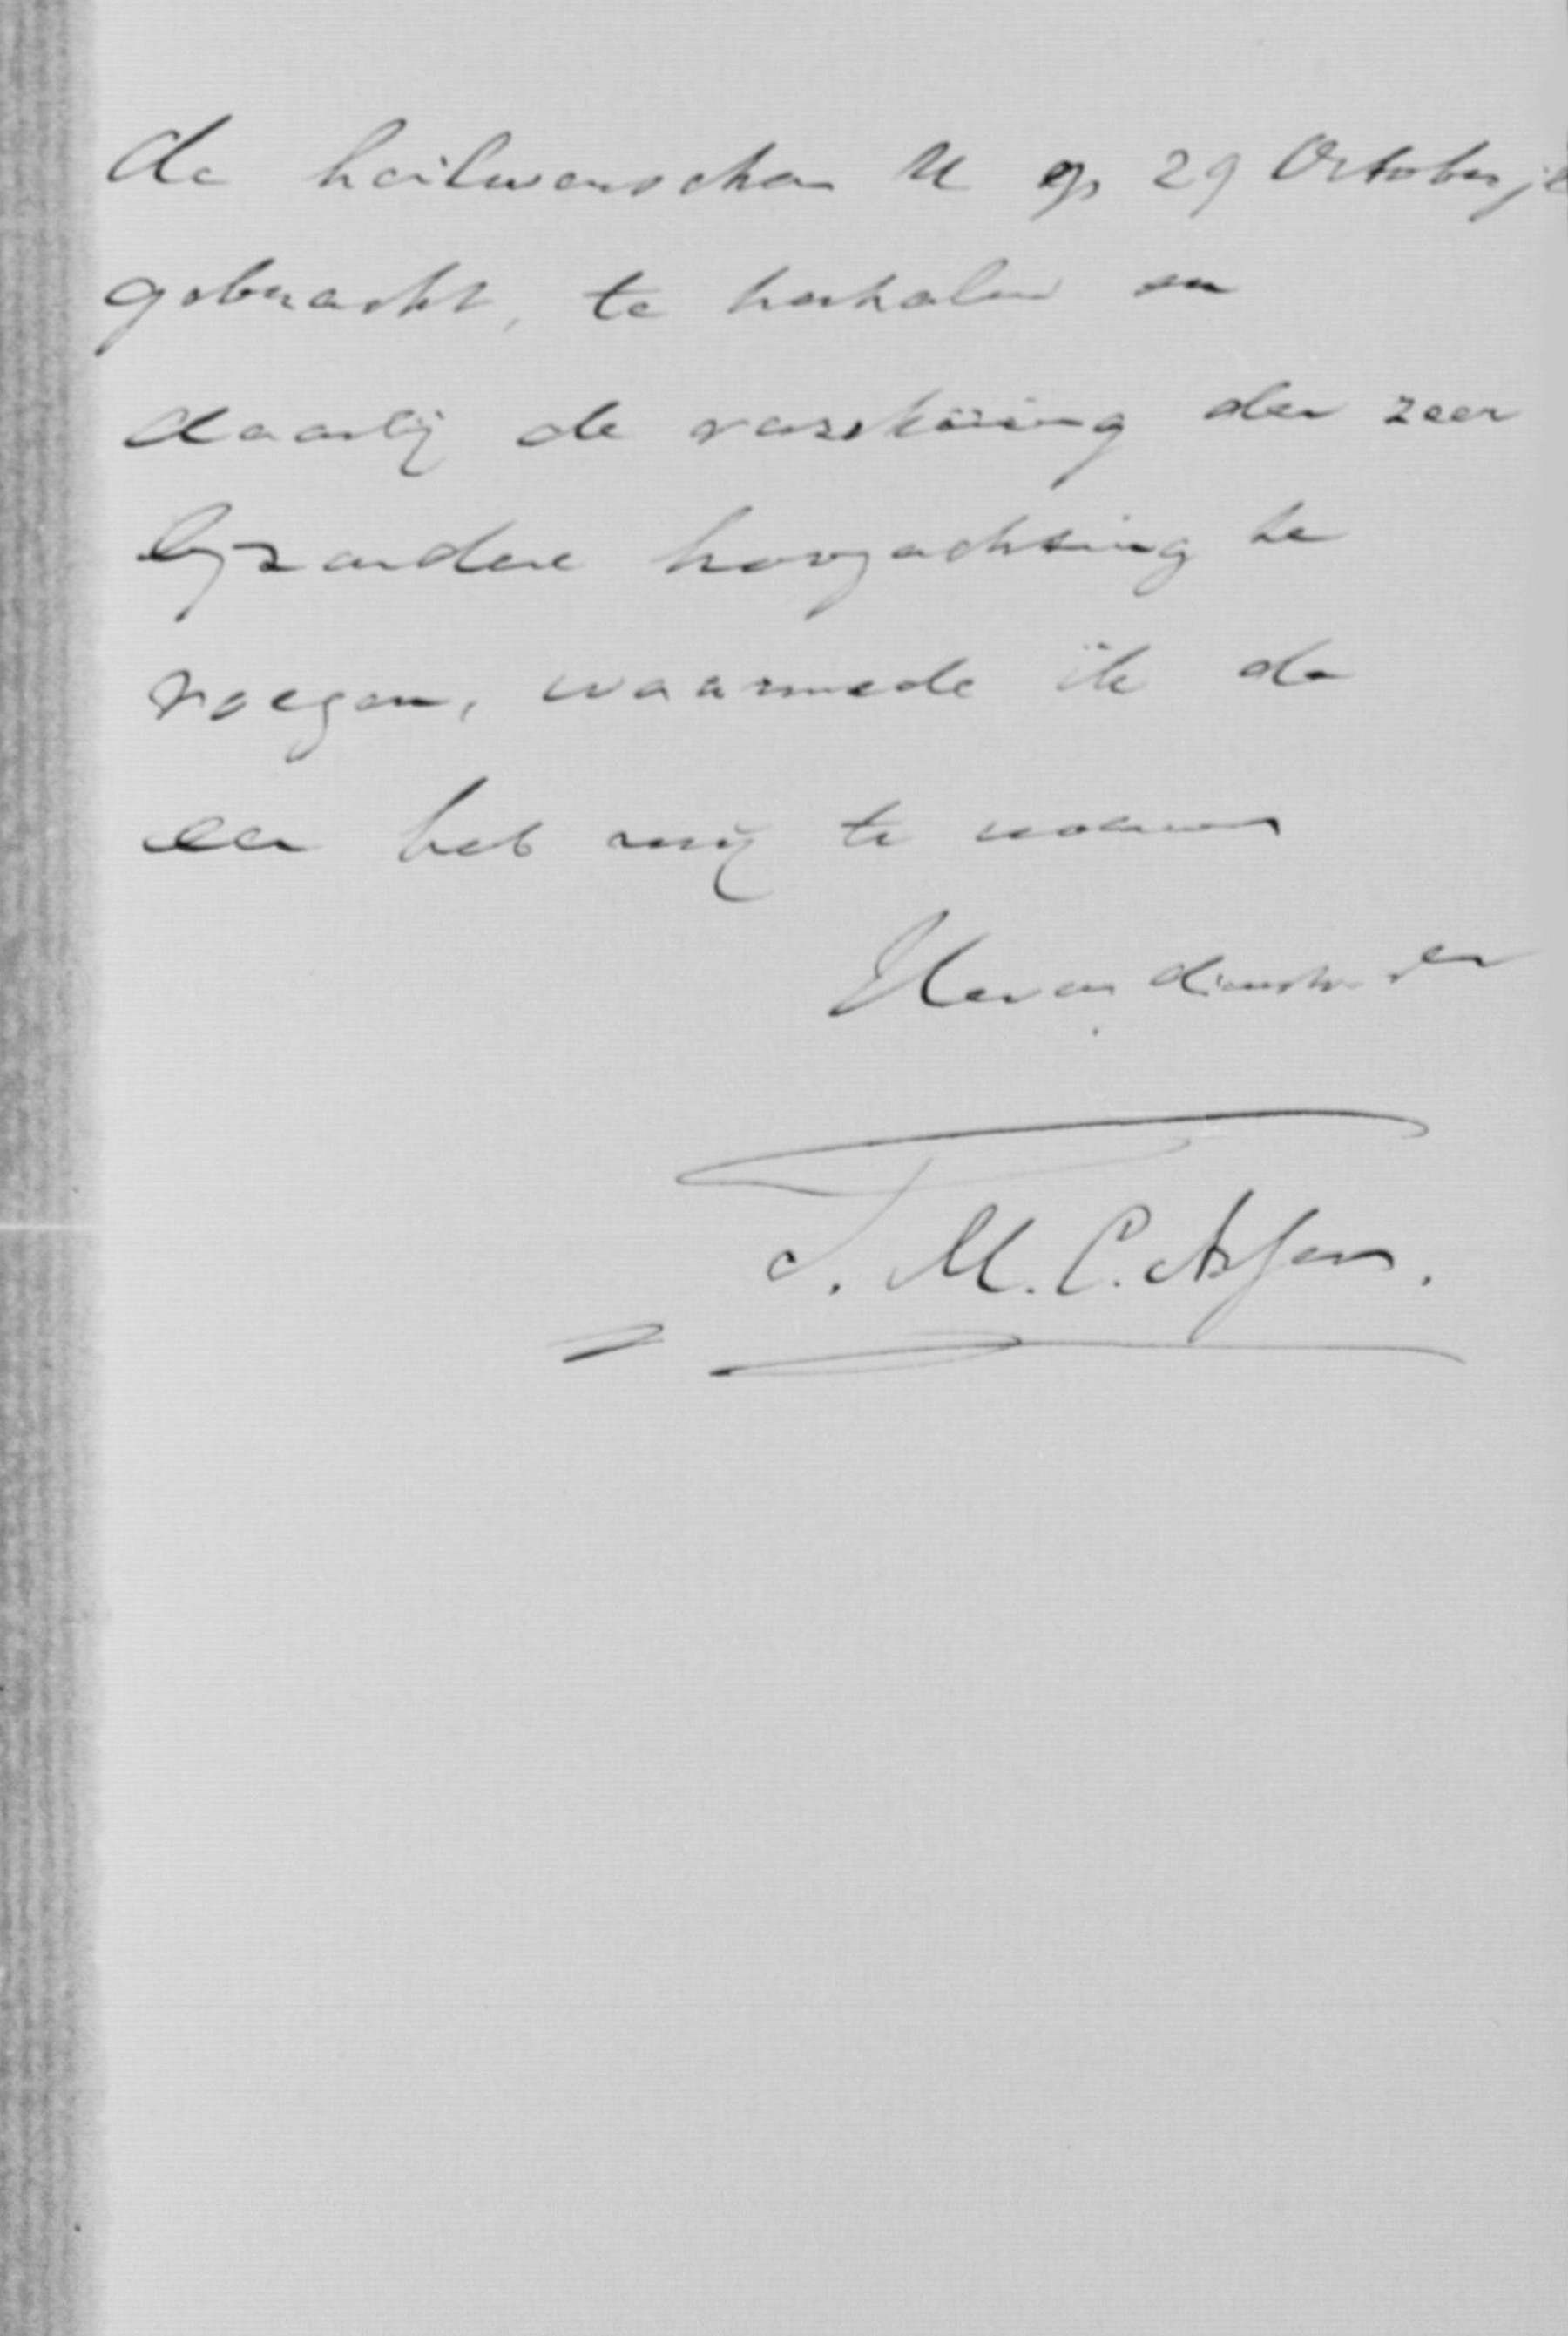 de heilwenschen U op 29 October jl
gebracht, te herhalen en
daarbij de verzekering der zeer
byzondere hoogachting te
voegen, waarmede ik de
eer heb mij te noemen
Uw en dienstw. dr
T. M. C. Asser.